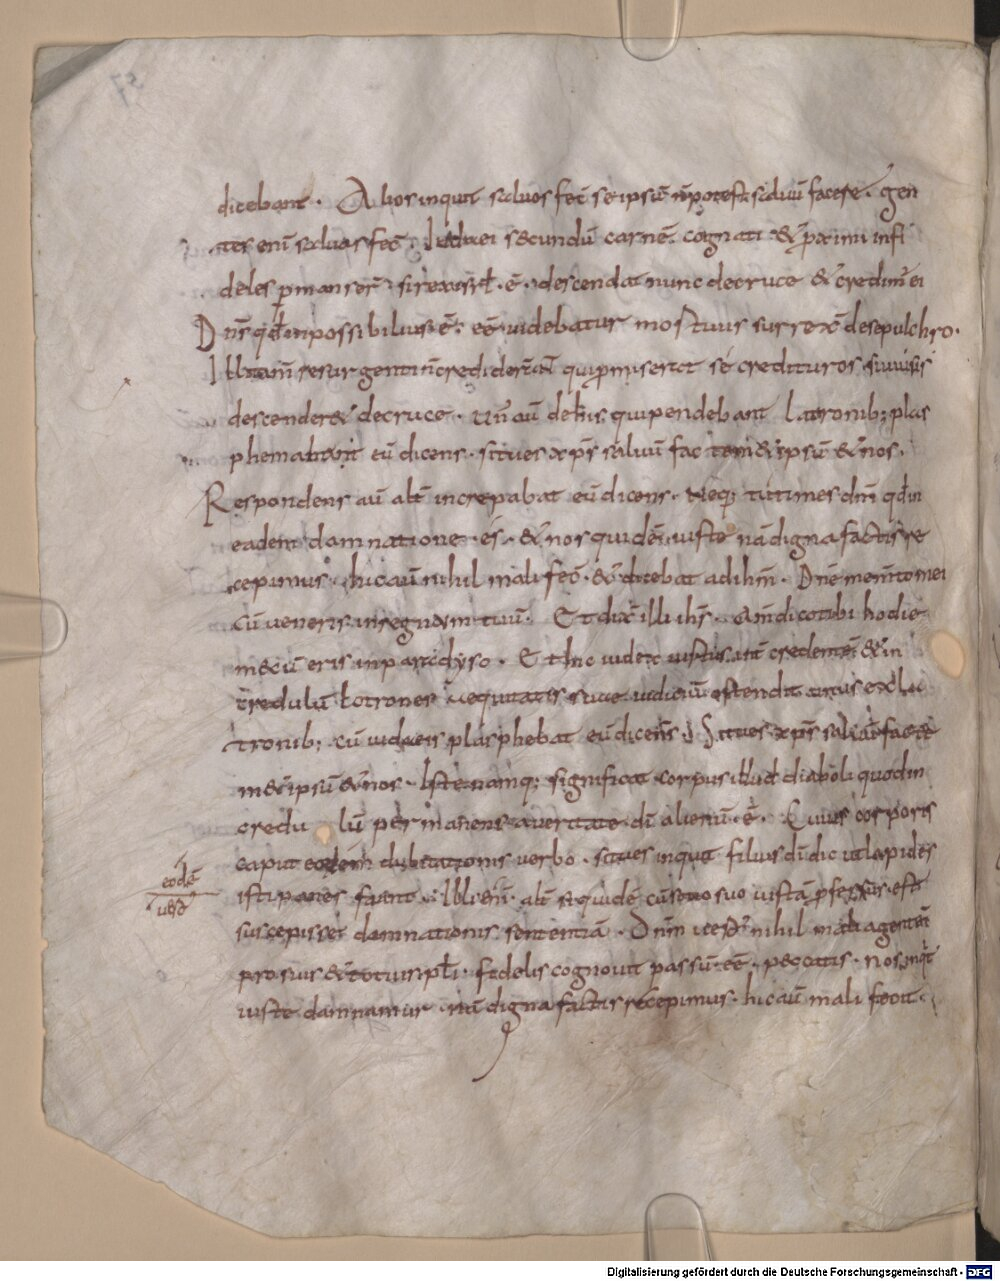 dicebant. Alios inquit saluos fec̄ se ipsū n̄ potest saluū facere. gen
tes enī saluas fec̄. Iudaei secundū carnē cognati & p̄ximi infi
deles p̄manser̄ si rex isrl̄ ē. descendat nunc de cruce & credim̄ ei
Dn̄s qd̄ inpossibilius ē. eē uidebatur mortuus surrex̄ de sepulchro.
Illi tam̄ resurgenti n̄ credider̄ qui p̄miserat se credituros si uiuus
descender& de cruce. un̄ aū de his qui pendebant latronib; plas
phemabant eū dicens. si tu es xp̄s saluū fac tem&ipsū & nos.
Respondens aū alt̄ increpabat eū dicens. Neq; tu times dm̄ qd̄ in
eadem damnatione es. & nos quidē iuste nā digna factis re
cepimus. hic aū nihil mali fec̄. & dicebat ad ihm̄. Dn̄e memto mei
cū ueneris in regnum tuū. Et dix̄ illi ihs̄. Am̄ dico tibi hodie
mecū eris in paradyso. Et hic iudex iustus int̄ credentē & in
credulū latrones aequitatis suae iudiciū ostendit unus ex la
tronib; cū uidens plasphebat eū dicens. Si tu es xp̄s saluū fac te
m&ipsū & nos. Iste namq; significat corpus illud diaboli quod in
credu lū permanens a ueritate dī alienū. ē. Cuius corporis
caput eodem dubitationis uerbo. si tu es inquit filius dī dic ut lapides
eodē
uerbo
isti panes fiant. Ille enī alt̄ siquidē cū reatu suo iustā p̄fessus est
suscepisset damnationis sententiā. Dnm̄ uero nihil mali agentē
pro suis & totius pl̄i. fidelis cognouit passū. eē. peccatis. nos inqt
iuste damnamur nā digna factis recepimus. hic aū mali fecit.
Digitalisierung gefördert durch die Deutsche Forschungsgemeinschaft - DFG